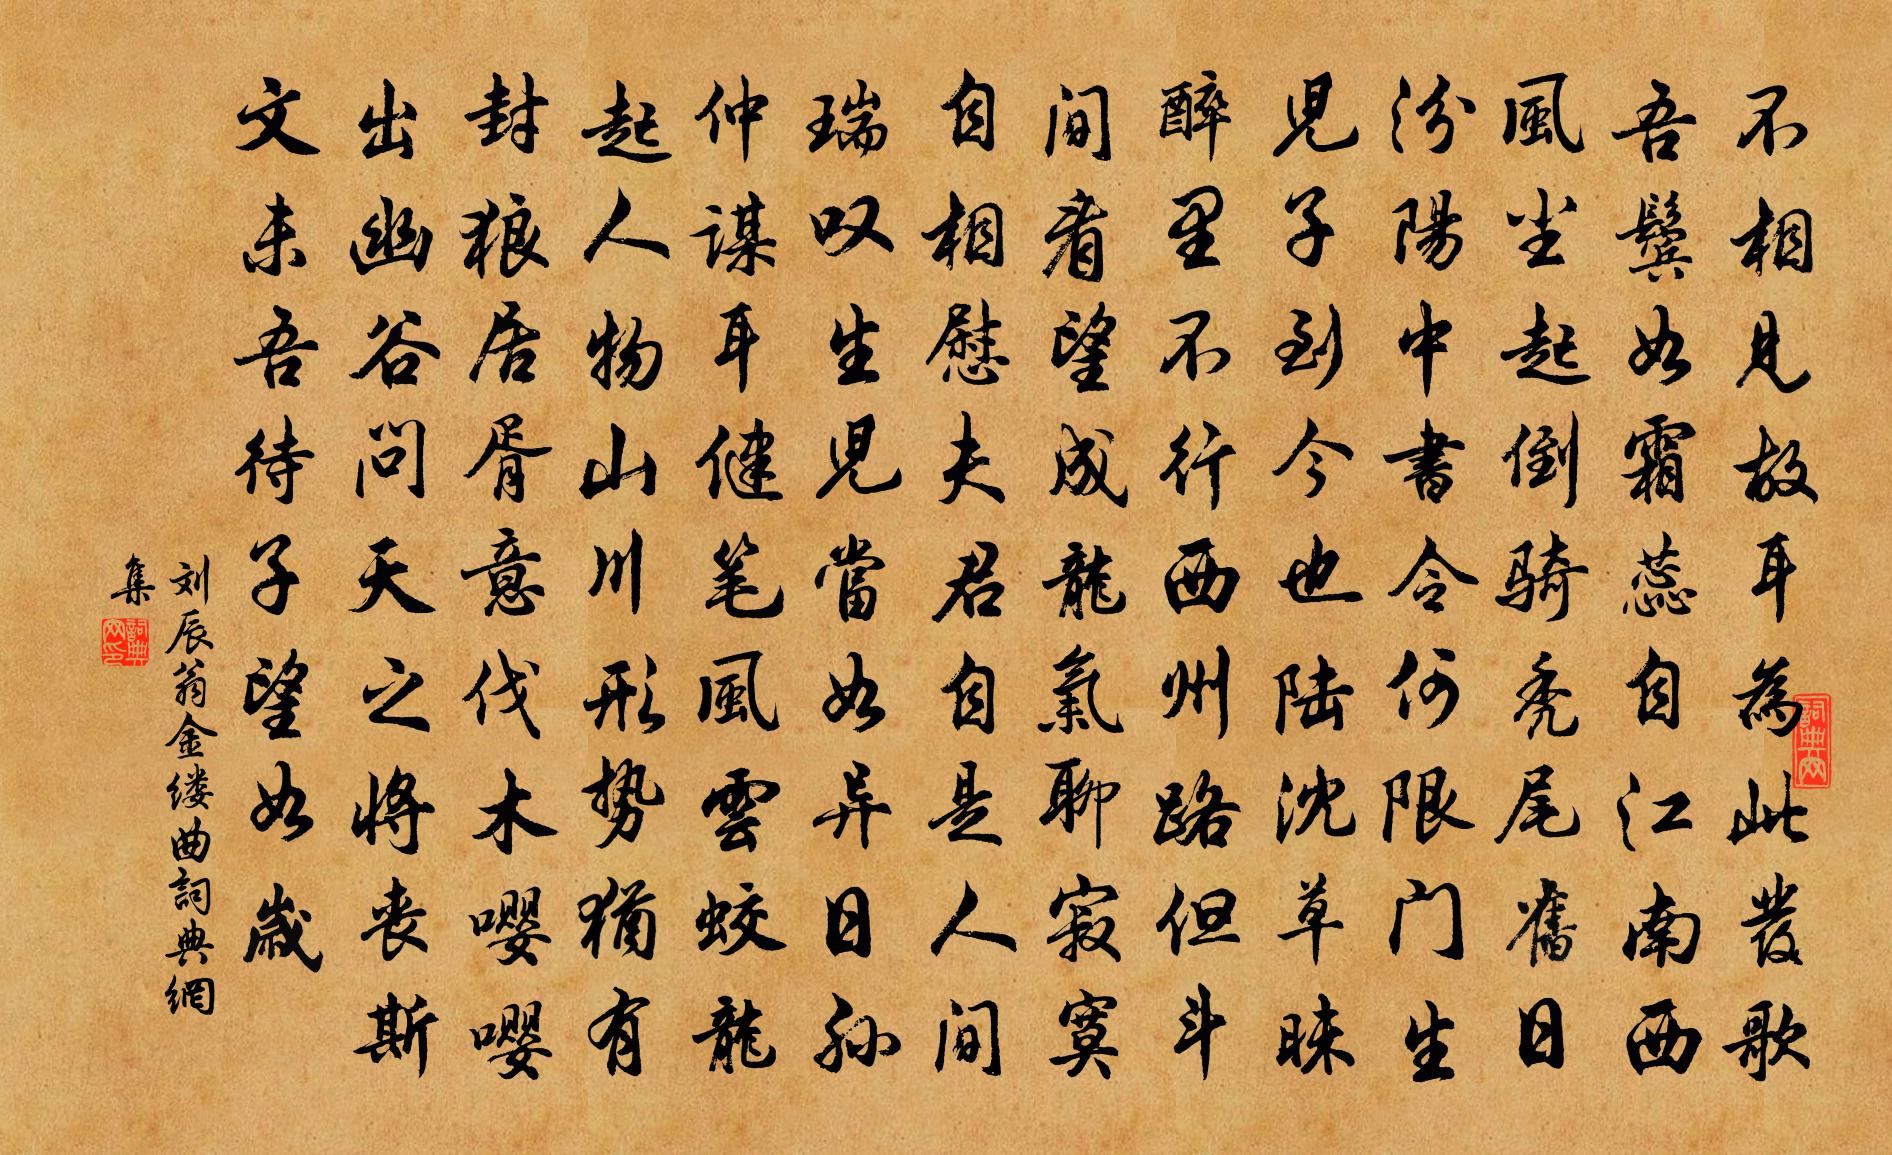 不相見故耳為此發歌
吾鬓如霜蕊自江南西
風尘起倒骑秃尾舊日
汾陽中書令何限门生
児子到今也陆沈草昧
醉里不行西州路但斗
间看望成龍氣聊寂寞
自相慰夫君自是人间
瑞叹生児當如异日孙
仲谋耳健笔風雲蛟龍
起人物山川形势猶有
封狼居胥意伐木嘤嘤
出幽谷问天之将丧斯
文未吾待子望如歲
刘辰翁金缕曲詞典網
集
詞典网印
詞典网